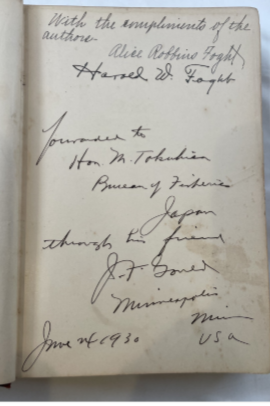 With the compliments of the
author
Alice Robbins Foght
Harold W. Foght
forwarded to
Hon. M. Tokubian
Bureau of Fisheries
Japan
through his friend
J. F. Gould
Minneapolis
Minn
June 24 1930
USA